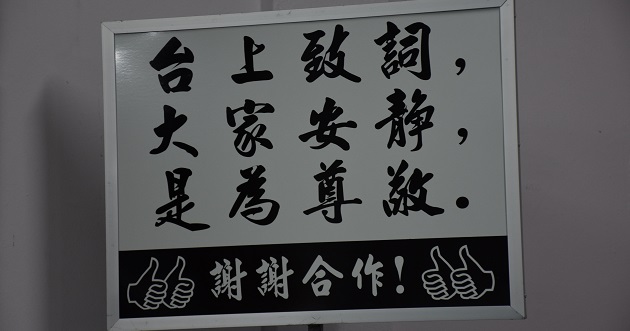 台上致詞，
大家安靜，
是為尊敬。
謝謝合作！